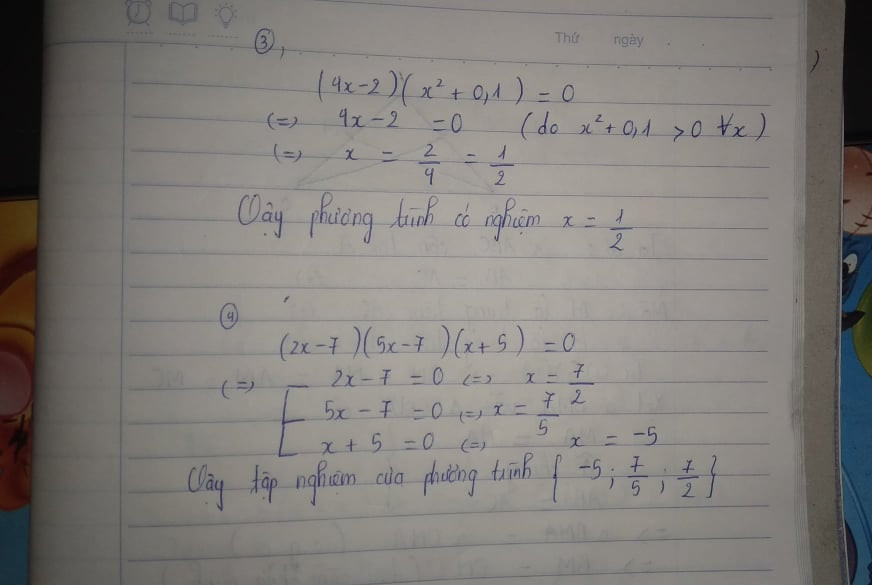 Thứ ngày
③,
(4x-2)(x² + 0,1) = 0
(=) 4x-2 = 0 (do x² + 0,1 > 0 ∀x)
(=) x = 2/4 = 1/2
Vậy phương trình có nghiệm x = 1/2
④
(2x-7)(5x-7)(x+5) = 0
(=) [ 2x-7 = 0 (=) x = 7/2
5x-7 = 0 (=) x = 7/5
x+5 = 0 (=) x = -5
Vậy tập nghiệm của phương trình { -5 ; 7/5 ; 7/2 }